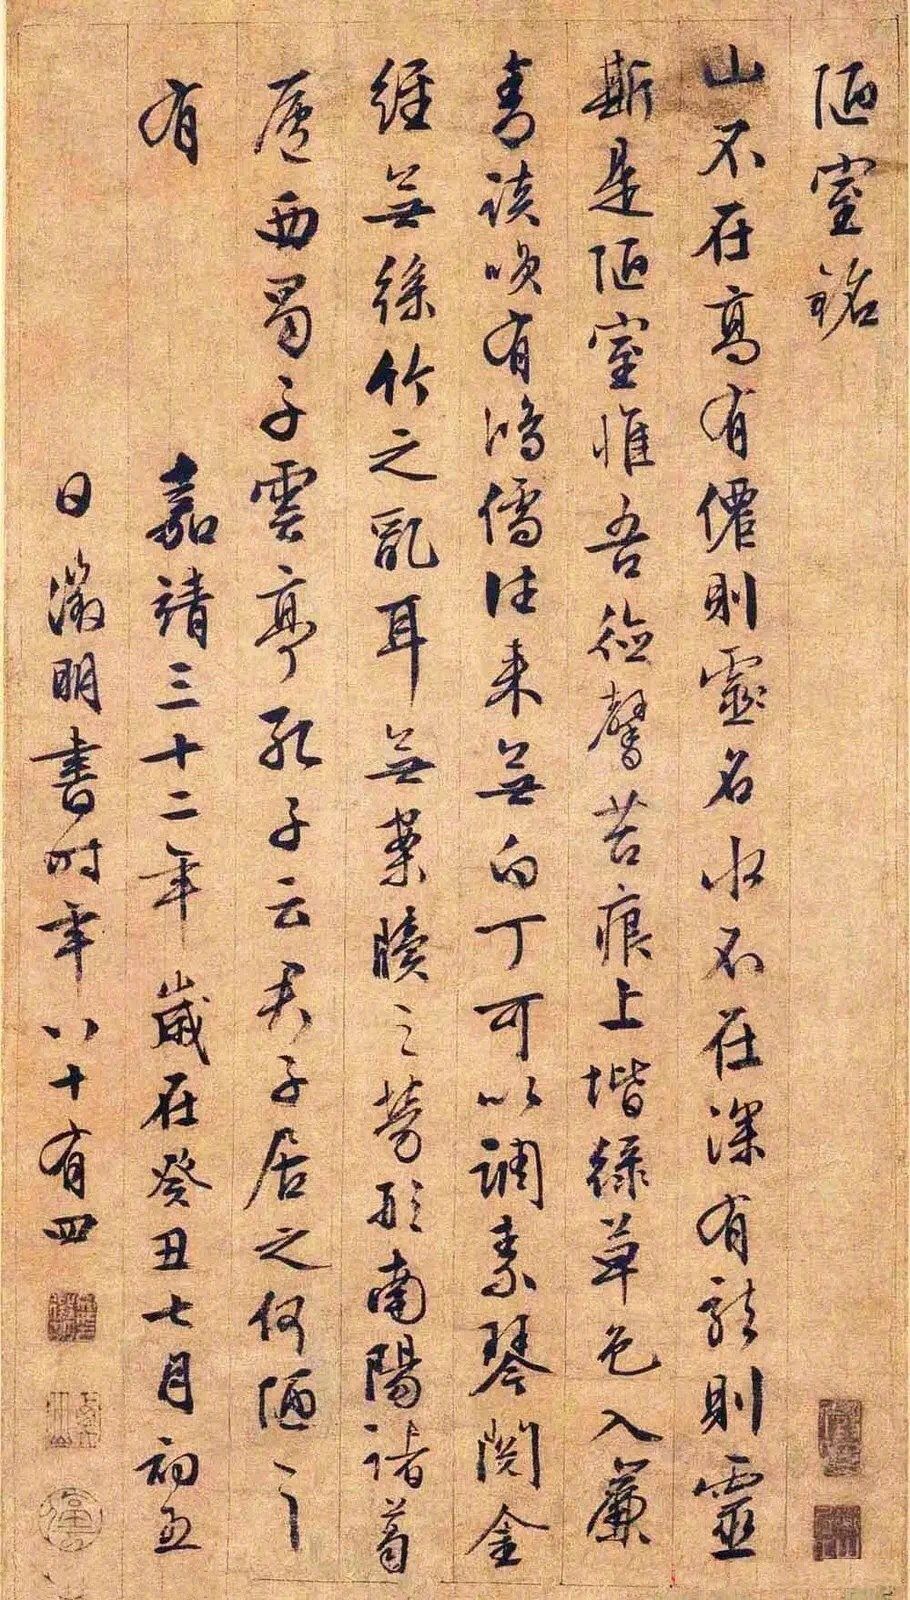 陋室銘
山不在高有僊則靈名水不在深有龍則靈
斯是陋室惟吾德馨苔痕上堦綠草色入簾
青談咲有鴻儒往来無白丁可以調素琴閱金
經無絲竹之亂耳無案牘之勞形南陽諸葛
廬西蜀子雲亭孔子云君子居之何陋之
有
嘉靖三十二年歲在癸丑七月初五
日徵明書時年八十有四